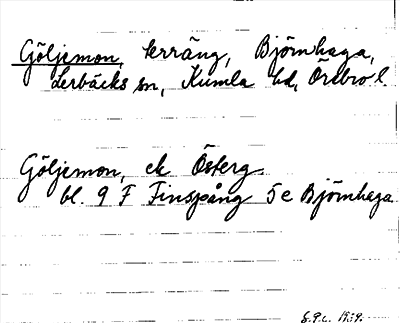 Göljemon, terräng, Björnhaga,
Lerbäcks sn, Kumla hd, Örebro l.
Göljemon, ek Österg.
bl. 9 F Finspång 5 e Björnhaga